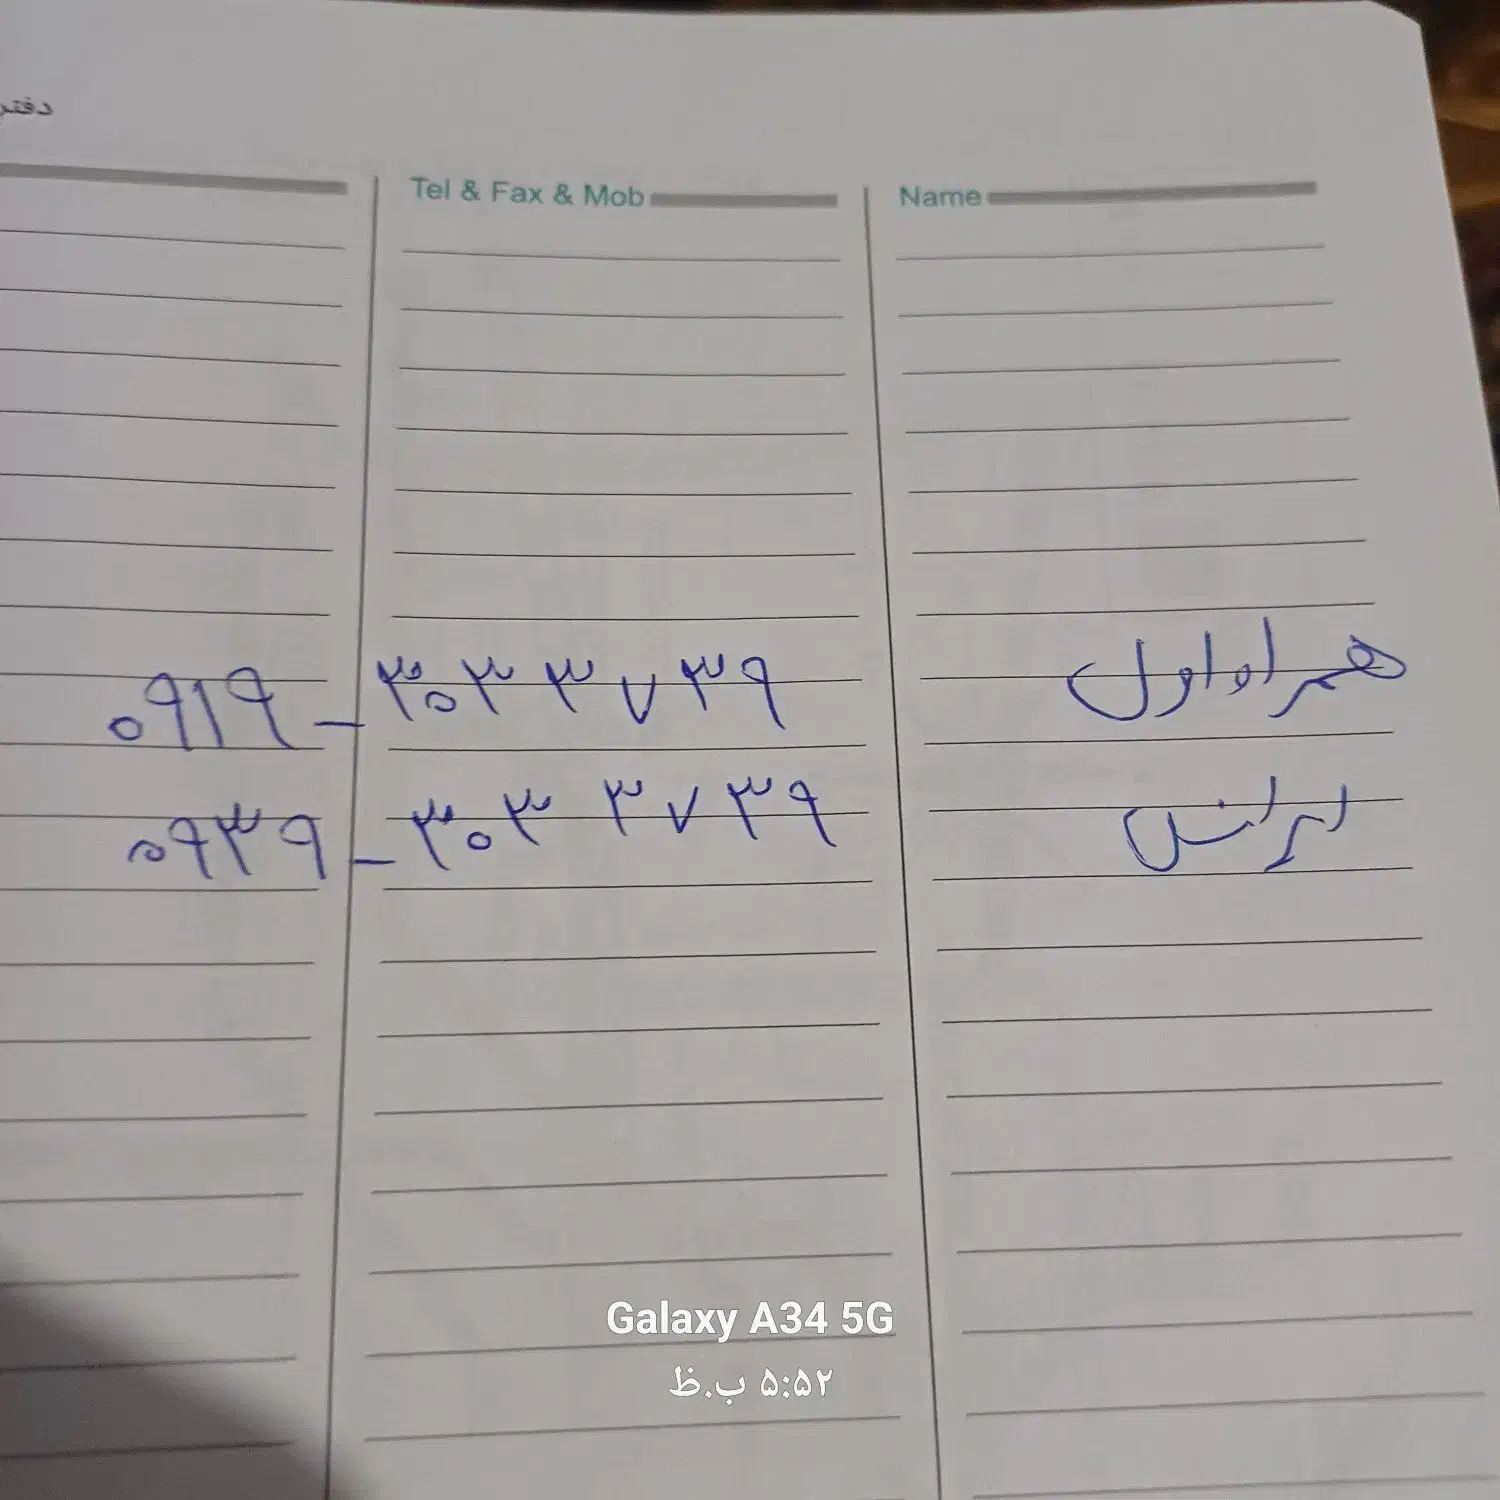 دفتر
Name
Tel & Fax & Mob
همراه اول
۰۹۱۹ - ۳۰۳۳۷۳۹
ایرانسل
۰۹۳۹ - ۳۰۳۳۷۳۹
Galaxy A34 5G
۵:۵۲ ب.ظ